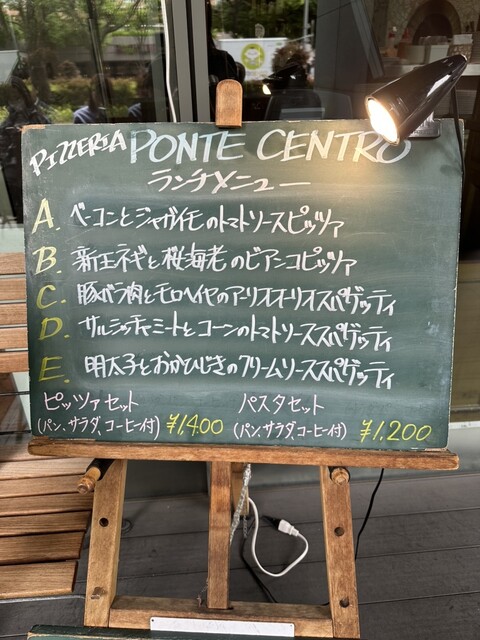 PIZZERIA PONTE CENTRO
ランチメニュー
A. ベーコンとジャガイモのトマトソースピッツァ
B. 新玉ネギと桜海老のビアンコピッツァ
C. 豚バラ肉とモロヘイヤのアーリオオーリオスパゲッティ
D. サルシッチャミートとコーンのトマトソーススパゲッティ
E. 明太子とおかひじきのクリームソーススパゲッティ
ピッツァセット
(パン、サラダ、コーヒー付) ¥1,400
パスタセット
(パン、サラダ、コーヒー付) ¥1,200